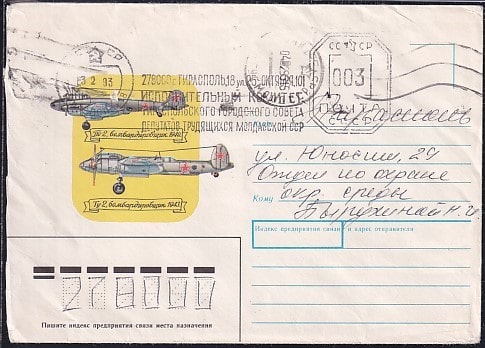 СССР
2 93
278000 г. ТИРАСПОЛЬ, 18 ул. 25 ОКТЯБРЯ, 101
ИСПОЛНИТЕЛЬНЫЙ
ТИРАСПОЛЬСКОГО ГОРОДСКОГО СОВЕТА
ДЕПУТАТОВ ТРУДЯЩИХСЯ МОЛДАВСКОЙ ССР
СССР
003
ПОЧТА
Пе-2, бомбардировщик 1940
Ту-2, бомбардировщик 1943
Тирасполь
ул. Юности, 27
Отдел по охране
Кому окр. среды
Индекс предприятия связи и адрес отправителя
278000
Пишите индекс предприятия связи места назначения